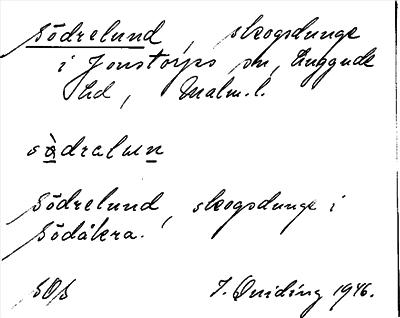 Södrelund, skogsdunge
i Jonstorps sn, Luggude
hd, Malm.l.
sødralun
Södrelund, skogsdunge i
Södåkra.
SOS J. Quiding 1946.